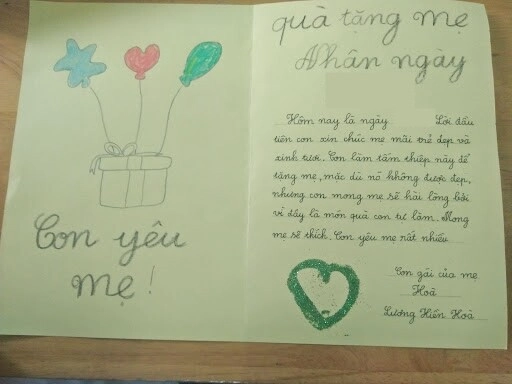 Con yêu
mẹ!
quà tặng mẹ
Nhân ngày
Hôm nay là ngày Lời đầu
tiên con xin chúc mẹ mãi trẻ đẹp và
xinh tươi. Con làm tấm thiệp này để
tặng mẹ, mặc dù nó không được đẹp,
nhưng con mong mẹ sẽ hài lòng bởi
vì đây là món quà con tự làm. Mong
mẹ sẽ thích. Con yêu mẹ rất nhiều
Con gái của mẹ
Hoà
Lương Hiền Hoà